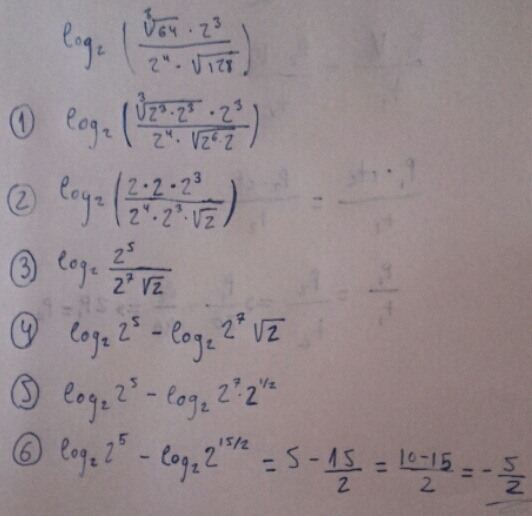 log₂ (∛64 · 2³ / 2⁴ · √128)
① log₂ (∛(2³·2³) · 2³ / 2⁴ · √(2⁶·2))
② log₂ (2·2·2³ / 2⁴·2³·√2)
③ log₂ 2⁵ / 2⁷ √2
④ log₂ 2⁵ - log₂ 2⁷ √2
⑤ log₂ 2⁵ - log₂ 2⁷·2^1/2
⑥ log₂ 2⁵ - log₂ 2^15/2 = 5 - 15/2 = 10-15/2 = -5/2